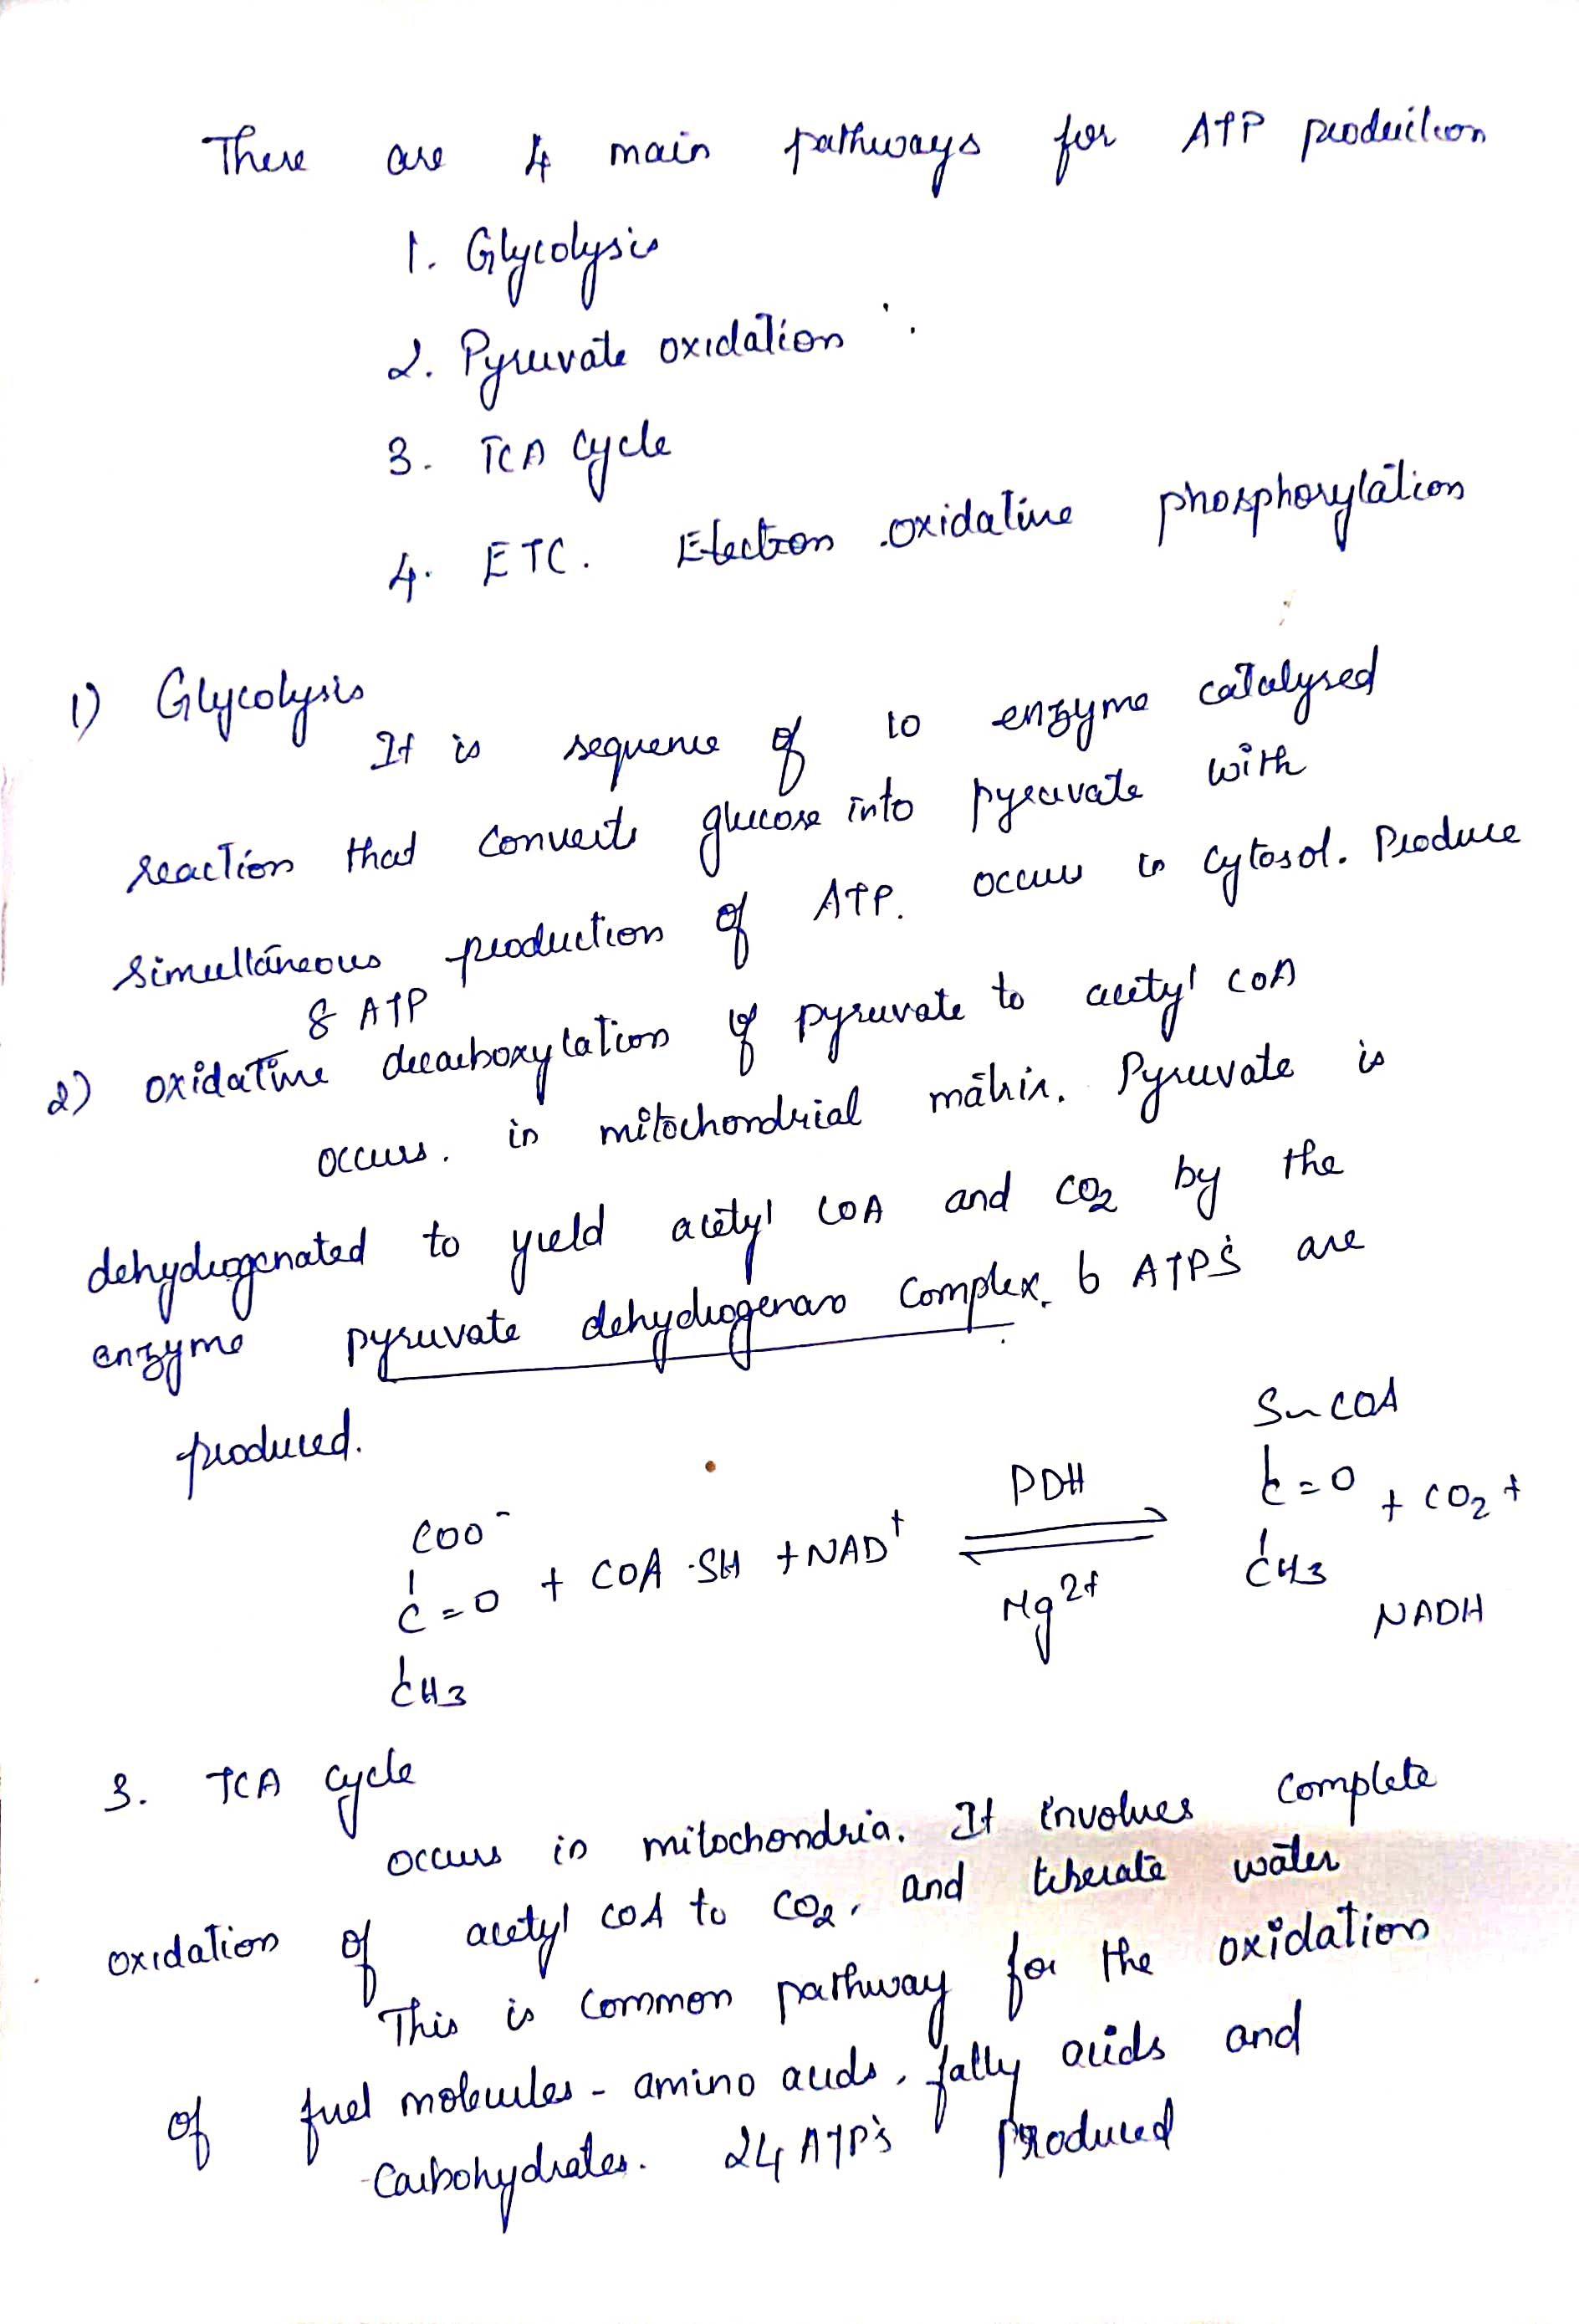 There are 4 main pathways for ATP production
1. Glycolysis
2. Pyruvate oxidation
3. TCA cycle
4. ETC. Electron oxidative phosphorylation
1) Glycolysis
It is sequence of 10 enzyme catalysed
reaction that converts glucose into pyruvate with
simultaneous production of ATP. occurs in cytosol. Produce
8 ATP
2) oxidative decarboxylation of pyruvate to acetyl coA
occurs. in mitochondrial matrix. Pyruvate is
dehydrogenated to yield acetyl CoA and CO2 by the
enzyme pyruvate dehydrogenase complex. 6 ATP's are
produced.
COO⁻ S~COA
C=O + COA·SH + NAD⁺ PDH ⇌ Mg2+ C=O + CO2 +
CH3 CH3 NADH
3. TCA cycle
occurs in mitochondria. It involves complete
oxidation of acetyl coA to CO2, and liberate water
This is common pathway for the oxidation
of fuel molecules - amino acids, fatty acids and
carbohydrates. 24 ATP's produced